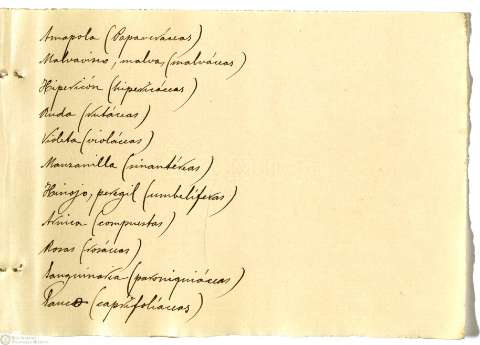 Amapola (Papaveráceas)
Malvavisco, malvas, (malváceas)
Hipericón (hipericáceas)
Ruda (rutáceas)
Violeta (violáceas)
Manzanilla (sinantéreas)
Hinojo, peregil (umbelíferas)
Arnica (compuestas)
Rosas (rosáceas)
Sanguinaria (paroniquiáceas)
Sauco (caprifoliáceas)